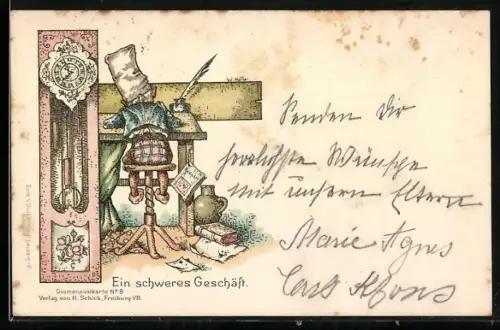 Senden Dir
herzlichste Wünsche
mit unsern Eltern
Marie Agnes
Carl Alfons
Ein schweres Geschäft.
Gnomenpostkarte Nº 8
Verlag von H. Schick, Freiburg i/B.